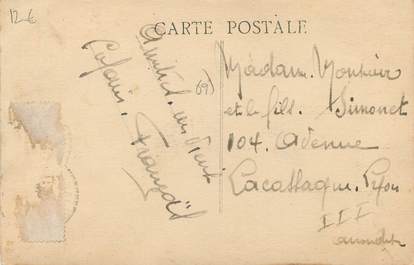 12€
CARTE POSTALE
Amitiés. un vieux
Lafani. François
69
Madame. Monsieur
et le fils. Simonet
104. Avenue
Lacassagne. Lyon
III